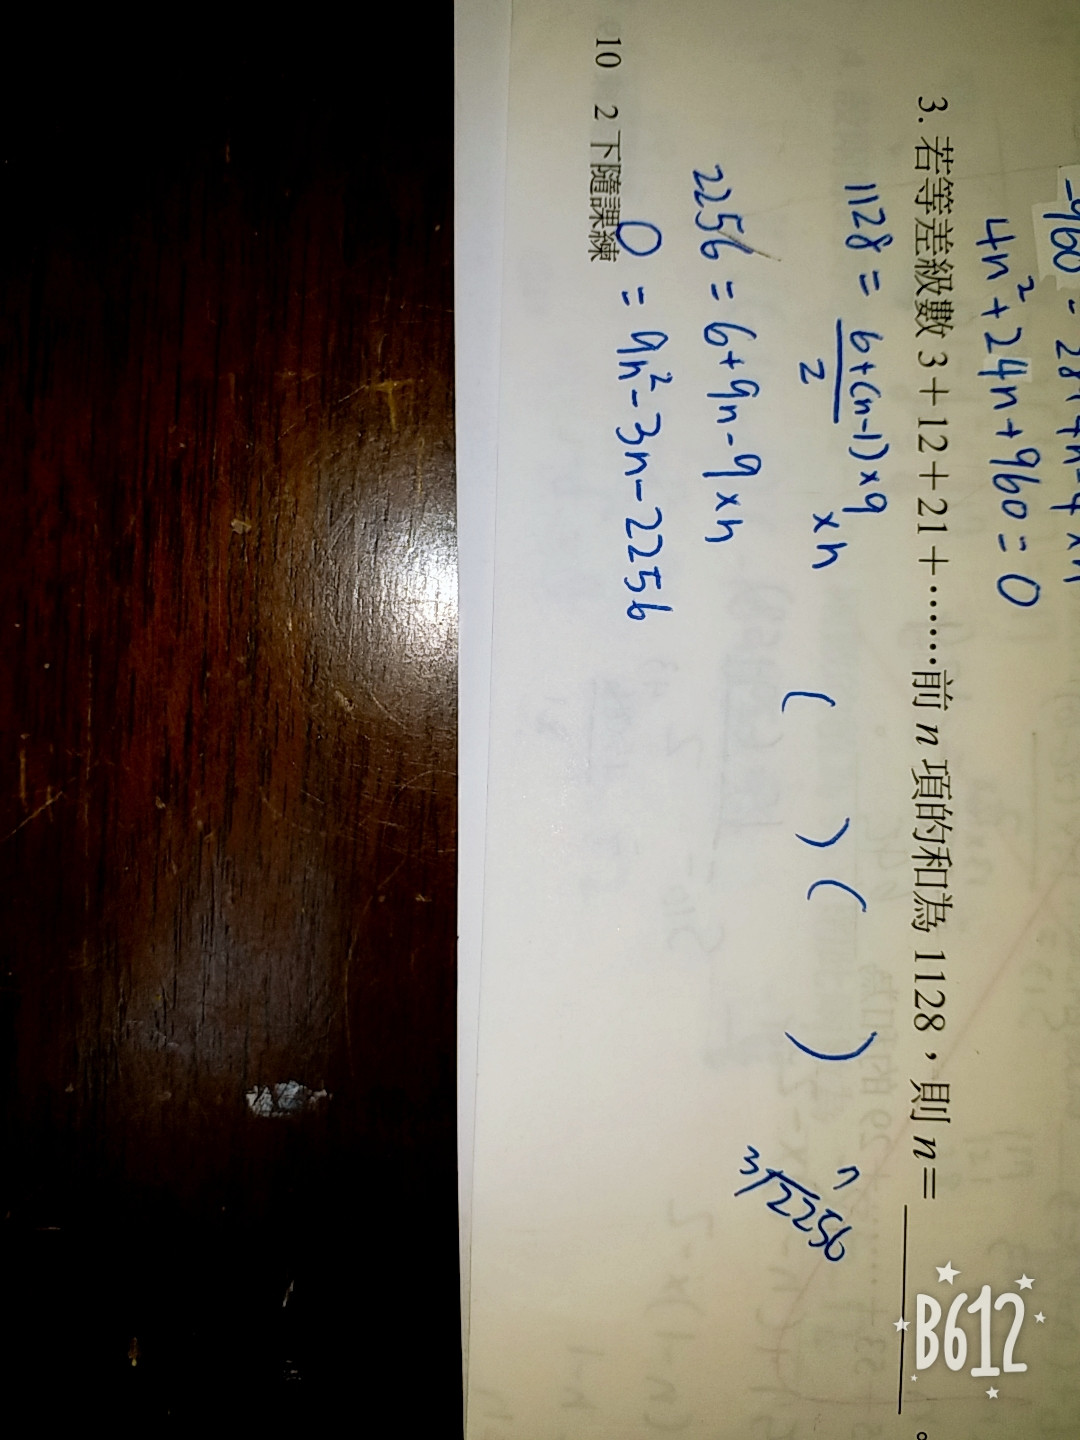 -960 = 28+4n-4×n
4n²+24n+960=0
3. 若等差級數 3+12+21+……前 n 項的和為 1128，則 n=＿＿＿。
1128 = 6+(n-1)×9 ×n
2
2256 = 6+9n-9×n
0 = 9n²-3n-2256
( )( )
7
3/2256
10 2下隨課練
B612